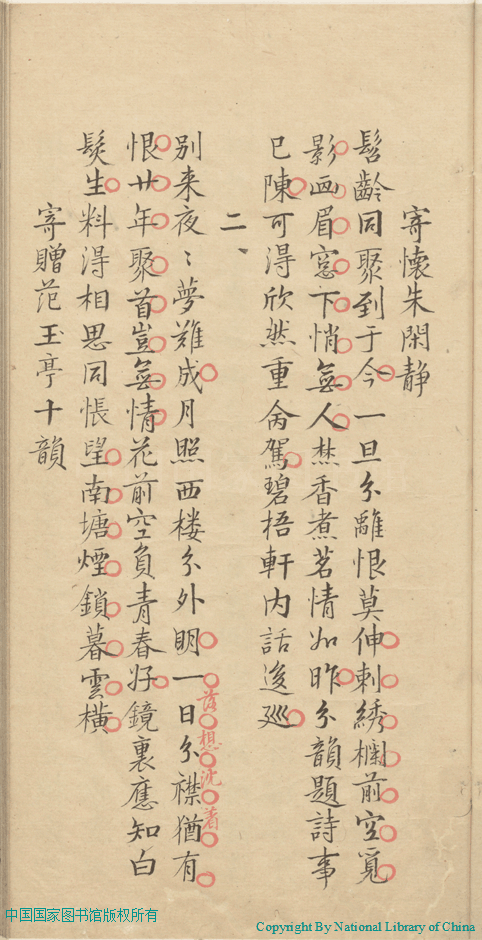 寄懷朱閑静
髫齡同聚到于今一旦分離恨莫伸刺綉欄前空覓
影画眉窓下悄無人焚香煮茗情如昨分韻題詩事
已陳可得欣然重命駕碧梧軒内話逡巡
二
别来夜〻夢難成月照西楼分外明一日分襟猶有
落想沈着
恨廿年聚首豈無情花前空負青春好鏡裏應知白
髮生料得相思同悵望南塘煙鎖暮雲横
寄贈范玉亭十韻
中国国家图书馆版权所有
Copyright By National Library of China